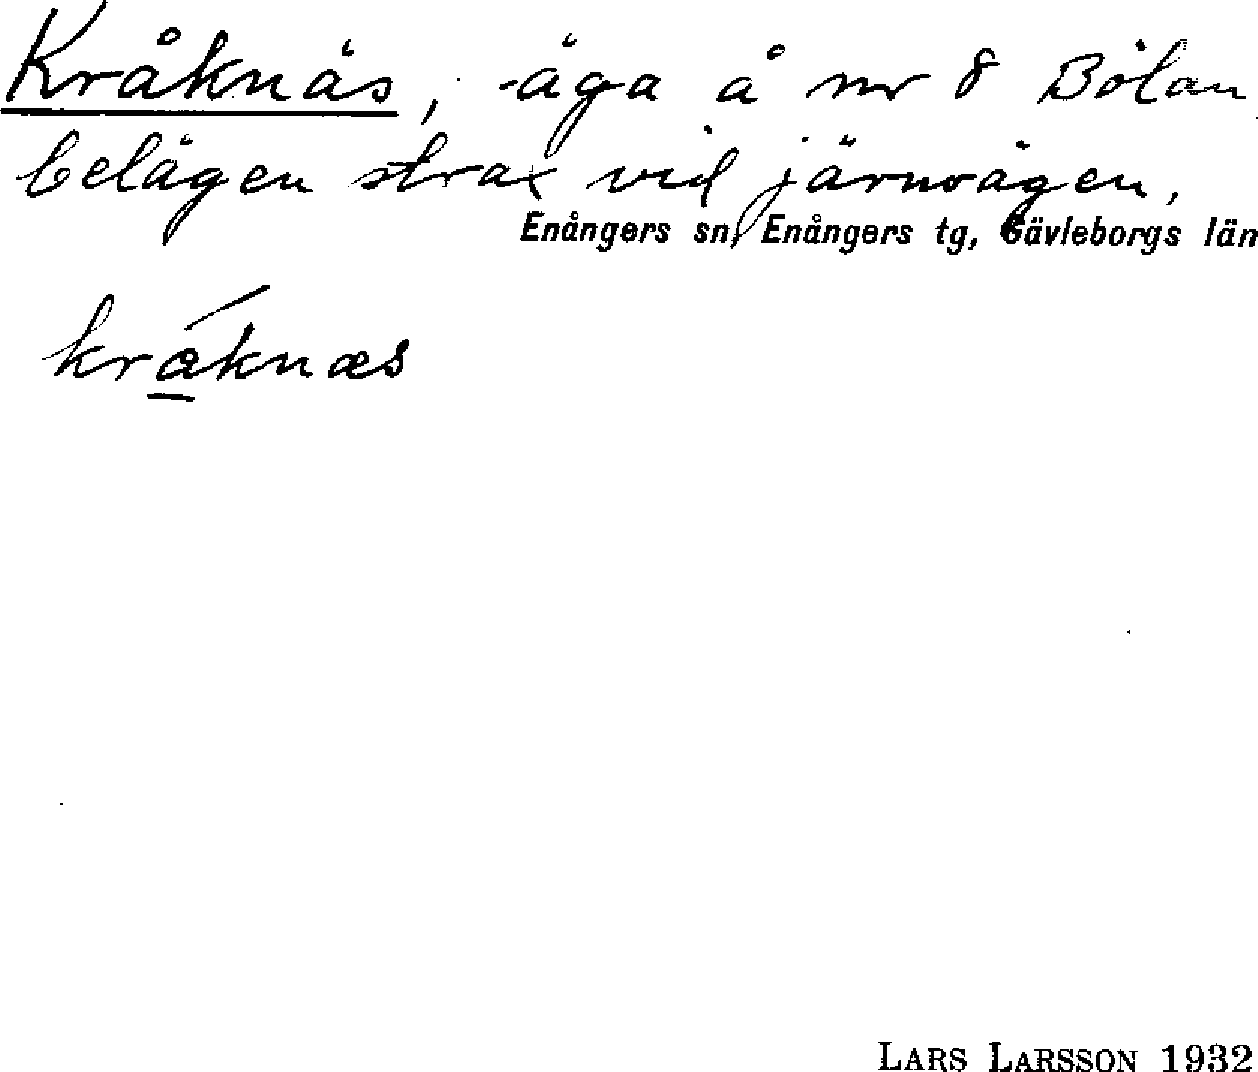 Kråknäs, äga å nr 8 Bölan
belägen strax vid järnvägen,
Enångers sn, Enångers tg, Gävleborgs län
kråknæs
LARS LARSSON 1932